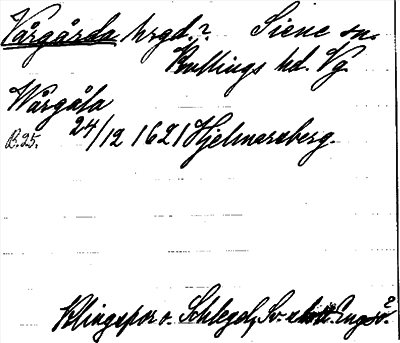 Vårgårda hrgd.? Siene sn.
Kullings hd. Vg.
Wårgåla
B.25. 24/12 1621 Hjelmaraberg.
Klingspor o. Schlegel, Sv. slott. Engsö.?